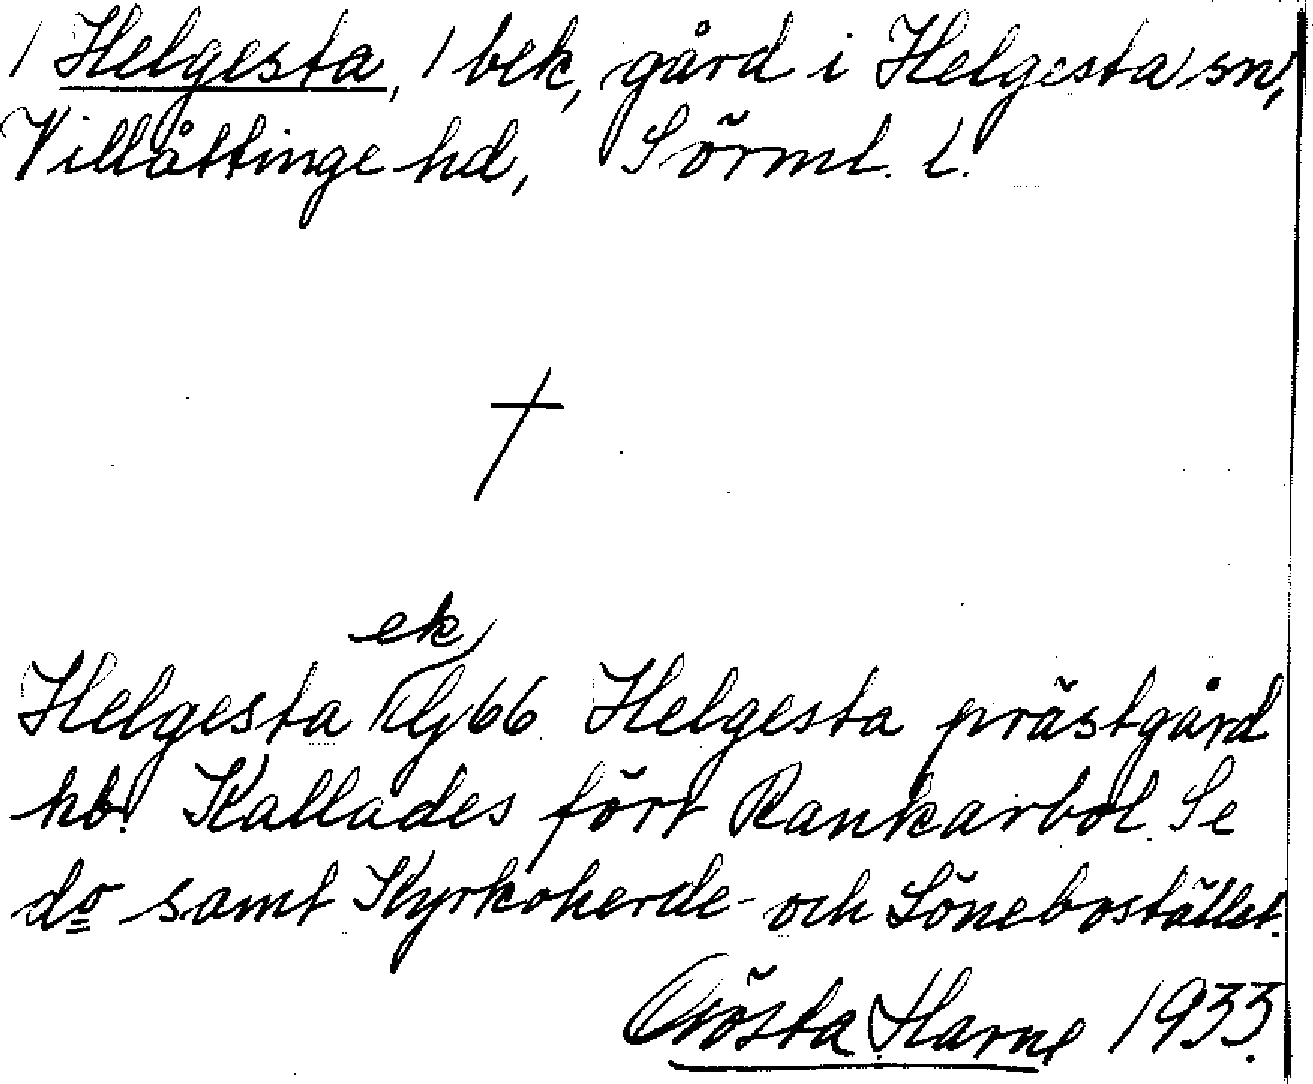 1 Helgesta, 1 bek, gård i Helgesta sn,
Villåttinge hd, Sörml. l.
†
ek
Helgesta Rg 66 Helgesta prästgård
hb. Kallades förr Rankarbol. Se
do samt Kyrkoherde- och Lönebostället.
Gösta Harne 1933.